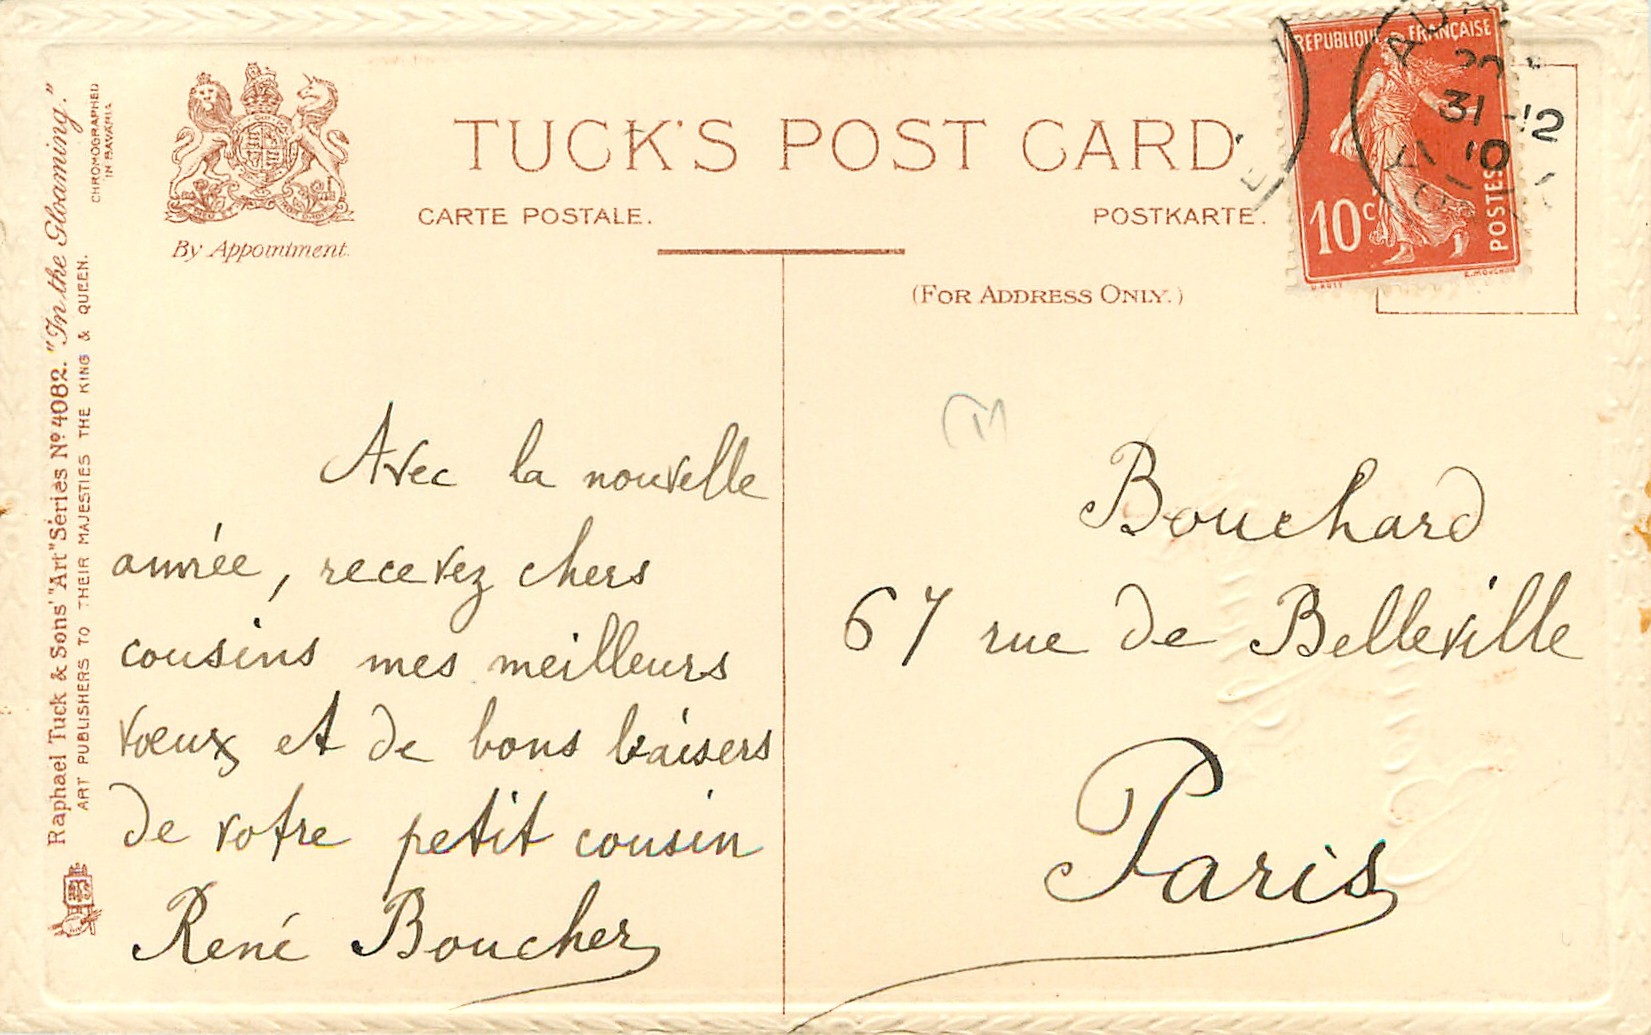 TUCK'S POST CARD
CARTE POSTALE.
POSTKARTE.
(FOR ADDRESS ONLY.)
By Appointment.
Raphael Tuck & Sons' "Art" Series Nº 4082. "In the Gloaming."
ART PUBLISHERS TO THEIR MAJESTIES THE KING & QUEEN.
CHROMOGRAPHED
IN BAVARIA
REPUBLIQUE FRANÇAISE
10 c
POSTES
E. MOUCHON
31 -12
10
Avec la nouvelle
année, recevez chers
cousins mes meilleurs
vœux et de bons baisers
de votre petit cousin
René Boucher
Bouchard
67 rue de Belleville
Paris